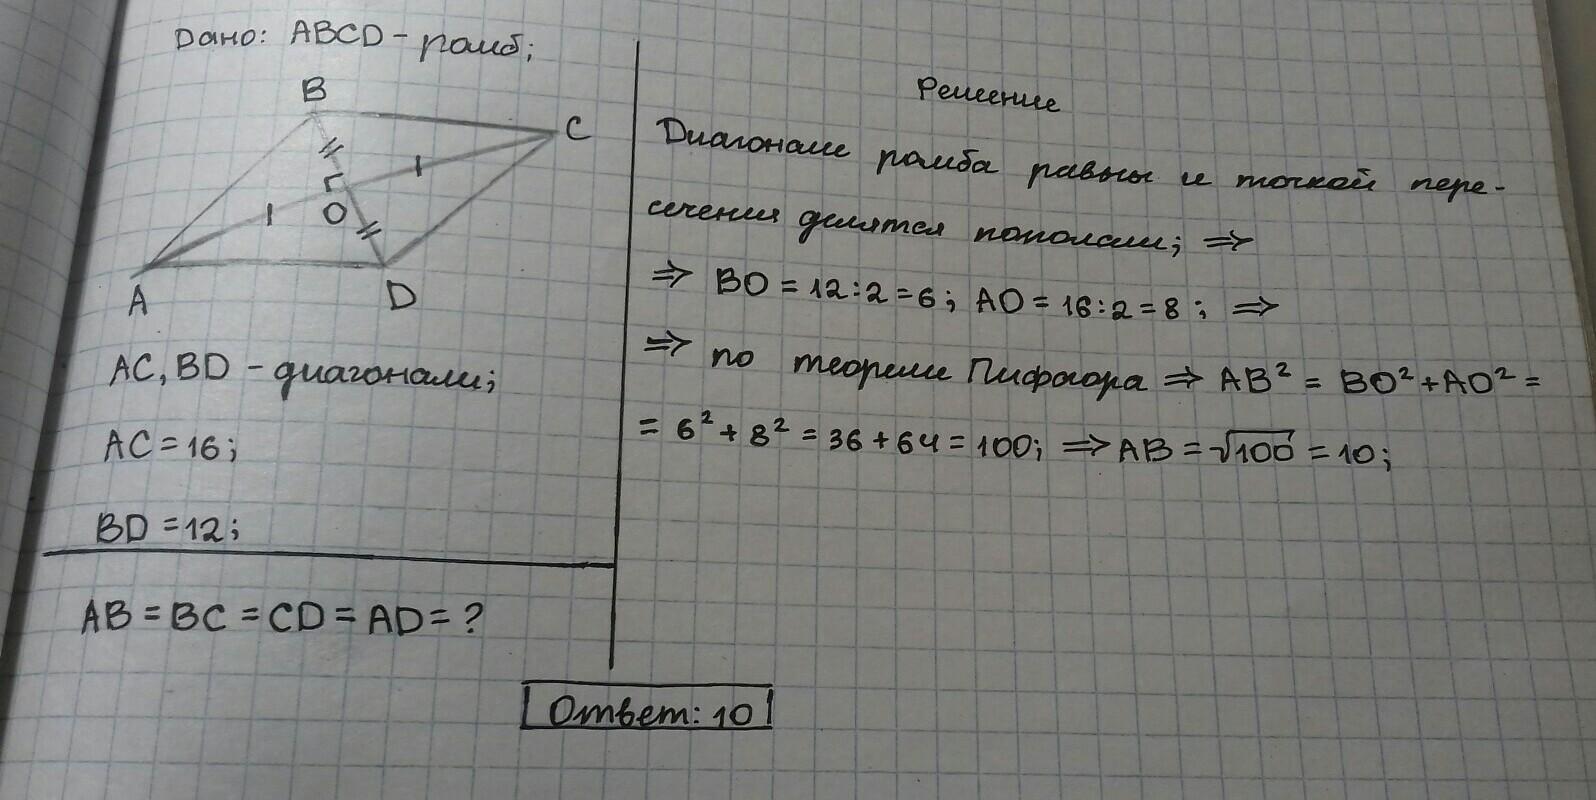 Дано: ABCD - ромб;
B
C
O
A
D
AC, BD - диагонали;
AC = 16;
BD = 12;
AB = BC = CD = AD = ?
Решение
Диагонали ромба равны и точкой пере-
сечения делятся пополам; ⇒
⇒ BO = 12:2 = 6; AO = 16:2 = 8; ⇒
⇒ по теореме Пифагора ⇒ AB² = BO² + AO² =
= 6² + 8² = 36 + 64 = 100; ⇒ AB = √100 = 10;
Ответ: 10